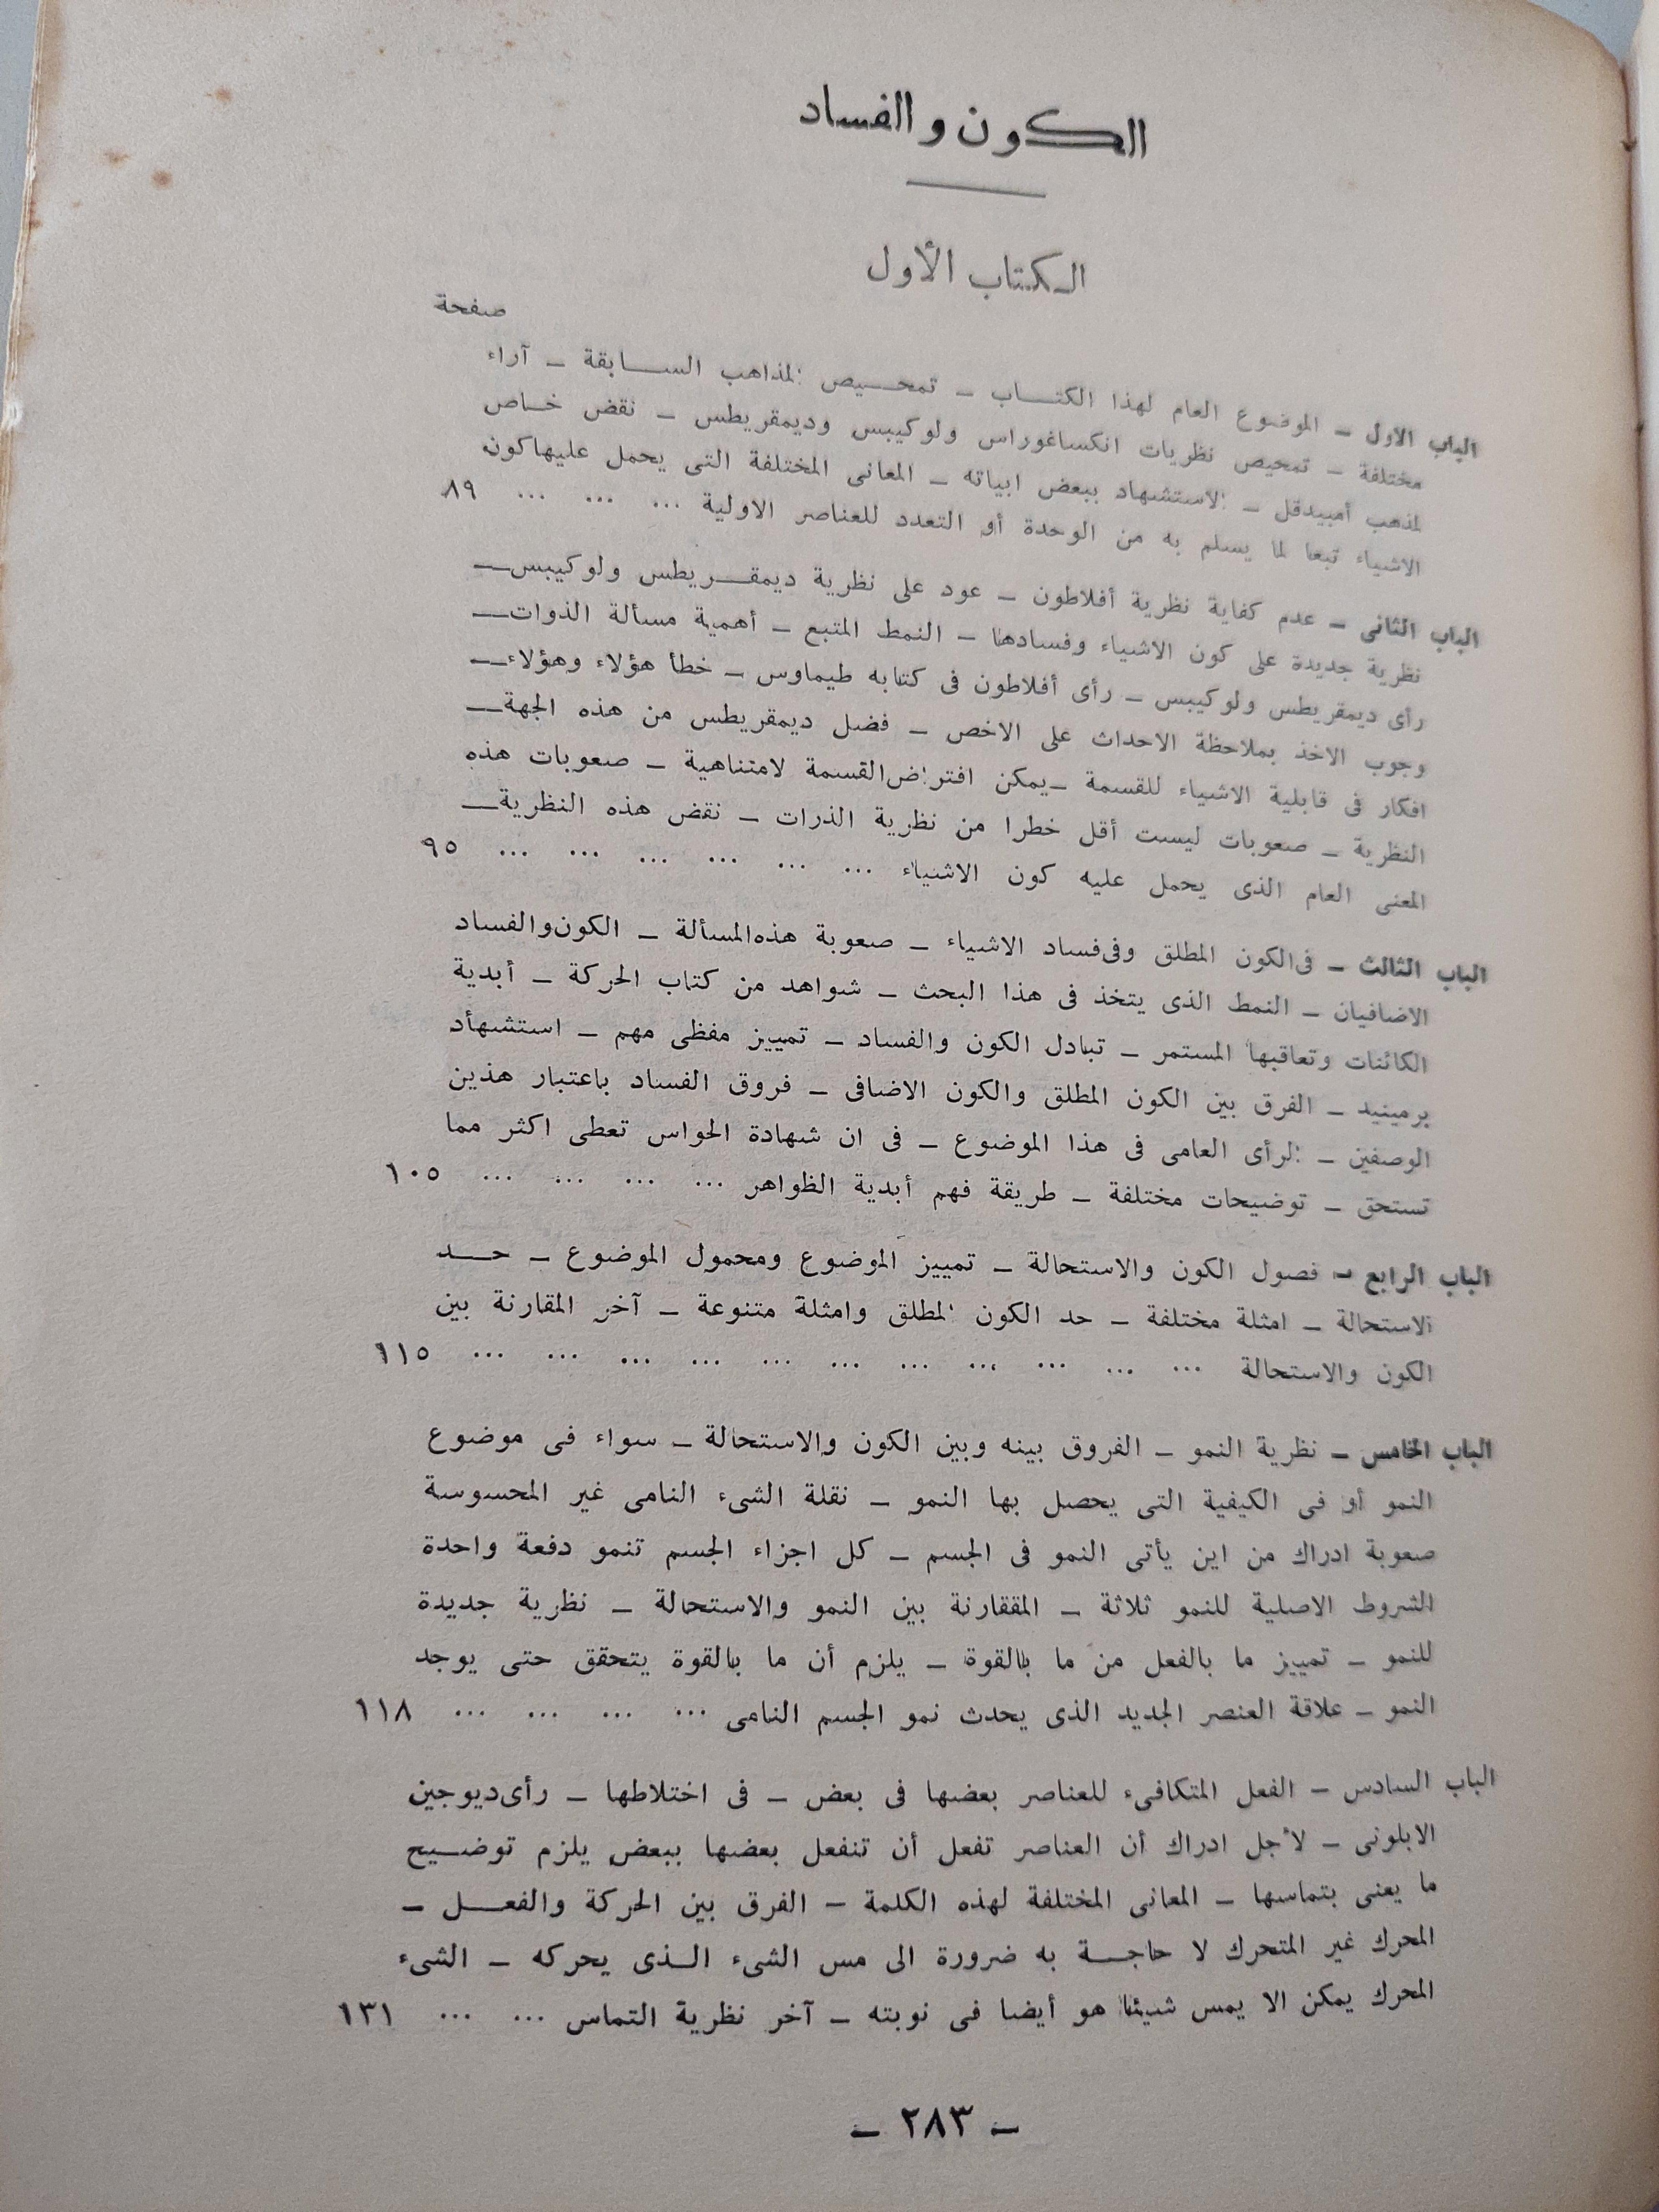 الكون والفساد
الكتاب الأول
صفحة
الباب الاول — الموضوع العام لهذا الكتاب — تمحيص المذاهب السابقة — آراء
مختلفة — تمحيص نظريات انكساغوراس ولوكيبس وديمقريطس — نقض خاص
لمذهب أمبيدقل — الاستشهاد ببعض ابياته — المعانى المختلفة التى يحمل عليهاكون
الاشياء تبعا لما يسلم به من الوحدة أو التعدد للعناصر الاولية ... ... ... ٨٩
الباب الثانى — عدم كفاية نظرية أفلاطون — عود على نظرية ديمقريطس ولوكيبس —
نظرية جديدة على كون الاشياء وفسادها — النمط المتبع — أهمية مسألة الذوات —
رأى ديمقريطس ولوكيبس — رأى أفلاطون فى كتابه طيماوس — خطأ هؤلاء وهؤلاء —
وجوب الاخذ بملاحظة الاحداث على الاخص — فضل ديمقريطس من هذه الجهة —
افكار فى قابلية الاشياء للقسمة — يمكن افتراض القسمة لامتناهية — صعوبات هذه
النظرية — صعوبات ليست أقل خطرا من نظرية الذرات — نقض هذه النظرية —
المعنى العام الذى يحمل عليه كون الاشياء ... ... ... ... ... ... ٩٥
الباب الثالث — فى الكون المطلق وفى فساد الاشياء — صعوبة هذه المسألة — الكون والفساد
الاضافيان — النمط الذى يتخذ فى هذا البحث — شواهد من كتاب الحركة — أبدية
الكائنات وتعاقبها المستمر — تبادل الكون والفساد — تمييز مفظى مهم — استشهأد
برمينيد — الفرق بين الكون المطلق والكون الاضافى — فروق الفساد باعتبار هذين
الوصفين — الرأى العامى فى هذا الموضوع — فى ان شهادة الحواس تعطى اكثر مما
تستحق — توضيحات مختلفة — طريقة فهم أبدية الظواهر ... ... ... ... ١٠٥
الباب الرابع — فصول الكون والاستحالة — تمييز الموضوع ومحمول الموضوع — حد
الاستحالة — امثلة مختلفة — حد الكون المطلق وامثلة متنوعة — آخر المقارنة بين
الكون والاستحالة ... ... ... ... ... ... ... ... ... ... ... ١١٥
الباب الخامس — نظرية النمو — الفروق بينه وبين الكون والاستحالة — سواء فى موضوع
النمو أو فى الكيفية التى يحصل بها النمو — نقلة الشىء النامى غير المحسوسة
صعوبة ادراك من اين يأتى النمو فى الجسم — كل اجزاء الجسم تنمو دفعة واحدة
الشروط الاصلية للنمو ثلاثة — المققارنة بين النمو والاستحالة — نظرية جديدة
للنمو — تمييز ما بالفعل من ما بالقوة — يلزم أن ما بالقوة يتحقق حتى يوجد
النمو — علاقة العنصر الجديد الذى يحدث نمو الجسم النامى ... ... ... ... ١١٨
الباب السادس — الفعل المتكافىء للعناصر بعضها فى بعض — فى اختلاطها — رأى ديوجين
الابلونى — لأجل ادراك أن العناصر تفعل أن تنفعل بعضها ببعض يلزم توضيح
ما يعنى بتماسها — المعانى المختلفة لهذه الكلمة — الفرق بين الحركة والفعل —
المحرك غير المتحرك لا حاجة به ضرورة الى مس الشىء الذى يحركه — الشىء
المحرك يمكن الا يمس شيئا هو أيضا فى نوبته — آخر نظرية التماس ... ... ... ١٣١
— ٢٨٣ —